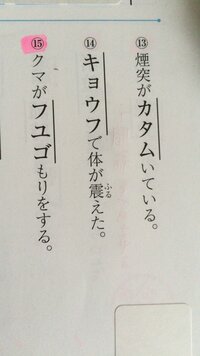 ⑬煙突がカタムいている。
⑭キョウフで体が震えた。
ふる
⑮クマがフユゴもりをする。